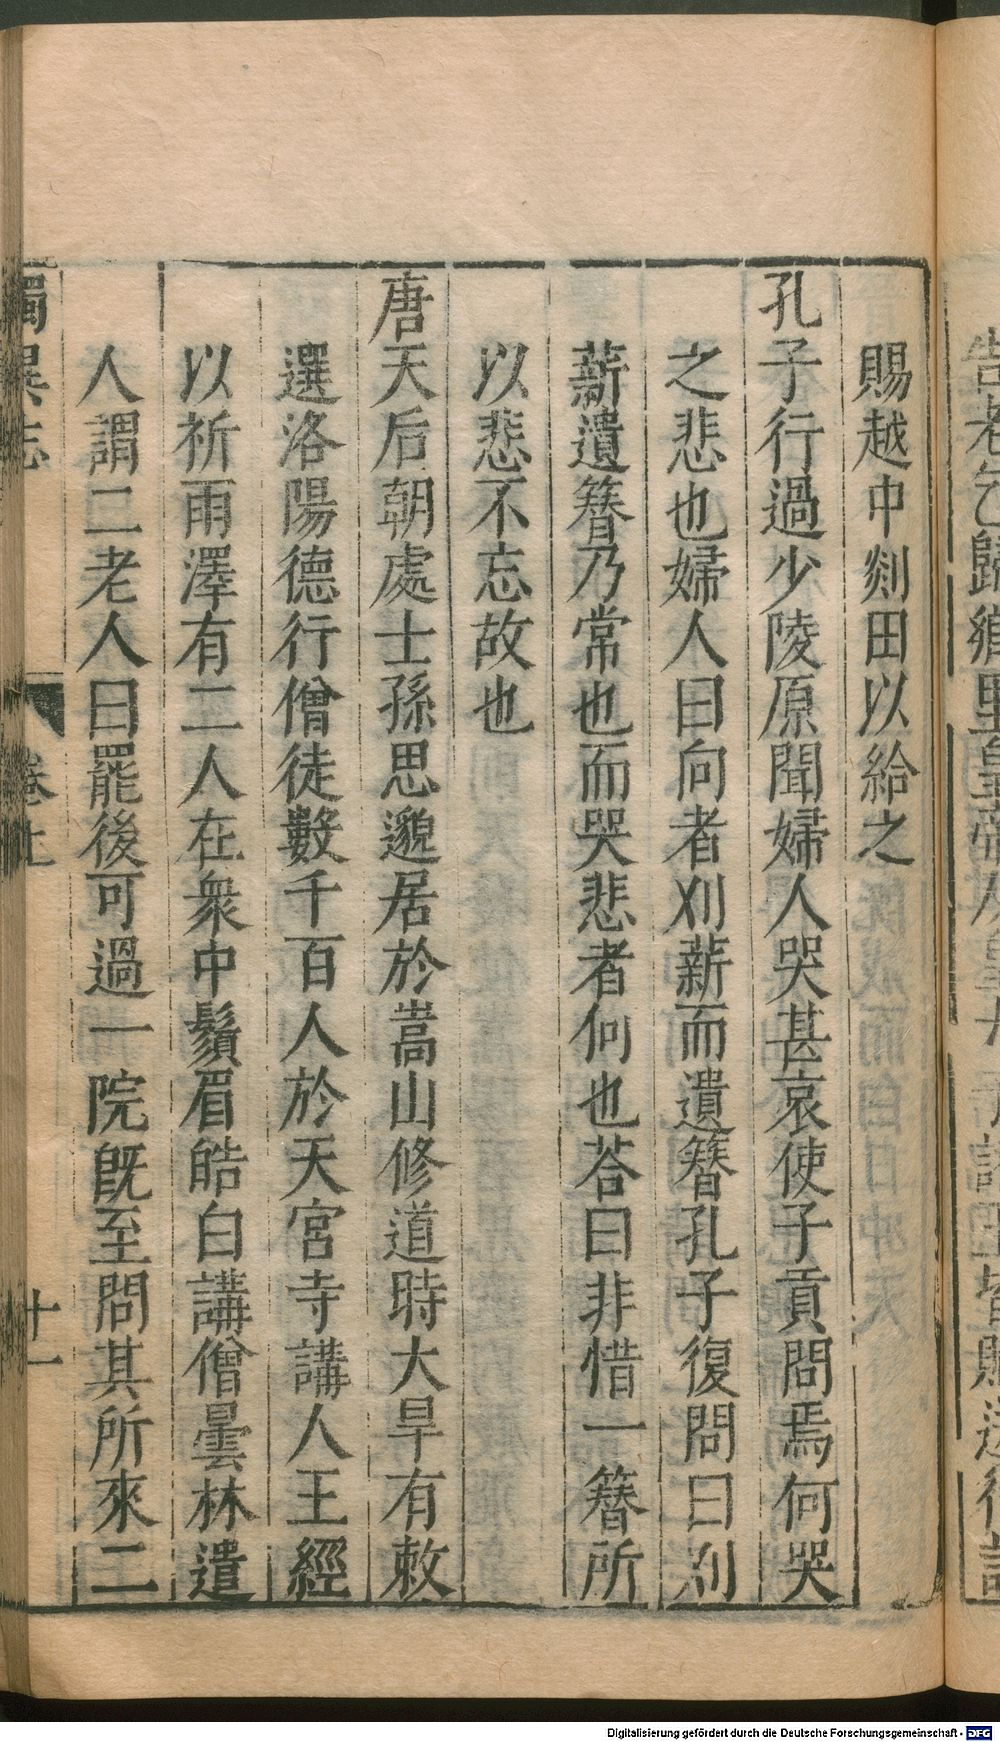 賜越中剡田以給之
孔子行過少陵原聞婦人哭甚哀使子貢問焉何哭
之悲也婦人曰向者刈薪而遺簪孔子復問曰刈
薪遺簪乃常也而哭悲者何也荅曰非惜一簪所
以悲不忘故也
唐天后朝處士孫思邈居於嵩山修道時大旱有敕
選洛陽德行僧徒數千百人於天宮寺講人王經
以祈雨澤有二人在衆中鬚眉皓白講僧曇林遣
人謂二老人曰罷後可過一院旣至問其所來二
獨異志
卷上
十一
Digitalisierung gefördert durch die Deutsche Forschungsgemeinschaft - DFG